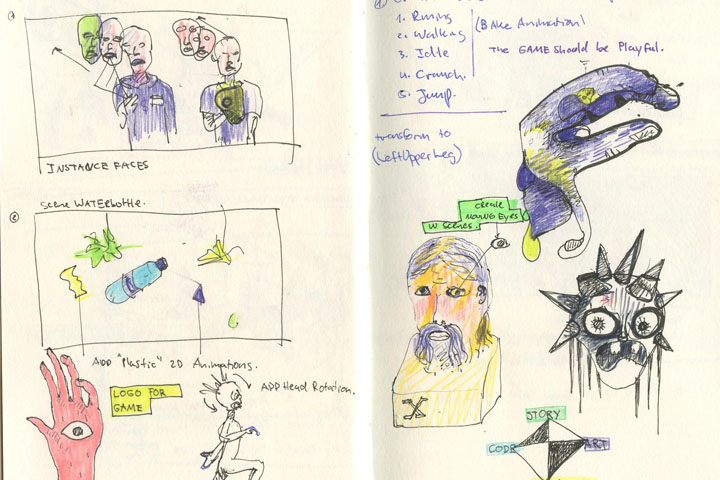 INSTANCE FACES
Scene WATERbottle.
ADD "Plastic" 2D Animations.
LOGO FOR
GAME
ADD Head Rotation.
1. Runing
2. Walking
3. Idle
4. Crunch.
5. Jump.
(Bake Animation)
The GAME Should be Playful.
transform to
(LeftUpperLeg)
Create
MOVING Eyes
W Scenes.
X
STORY
CODE
ART